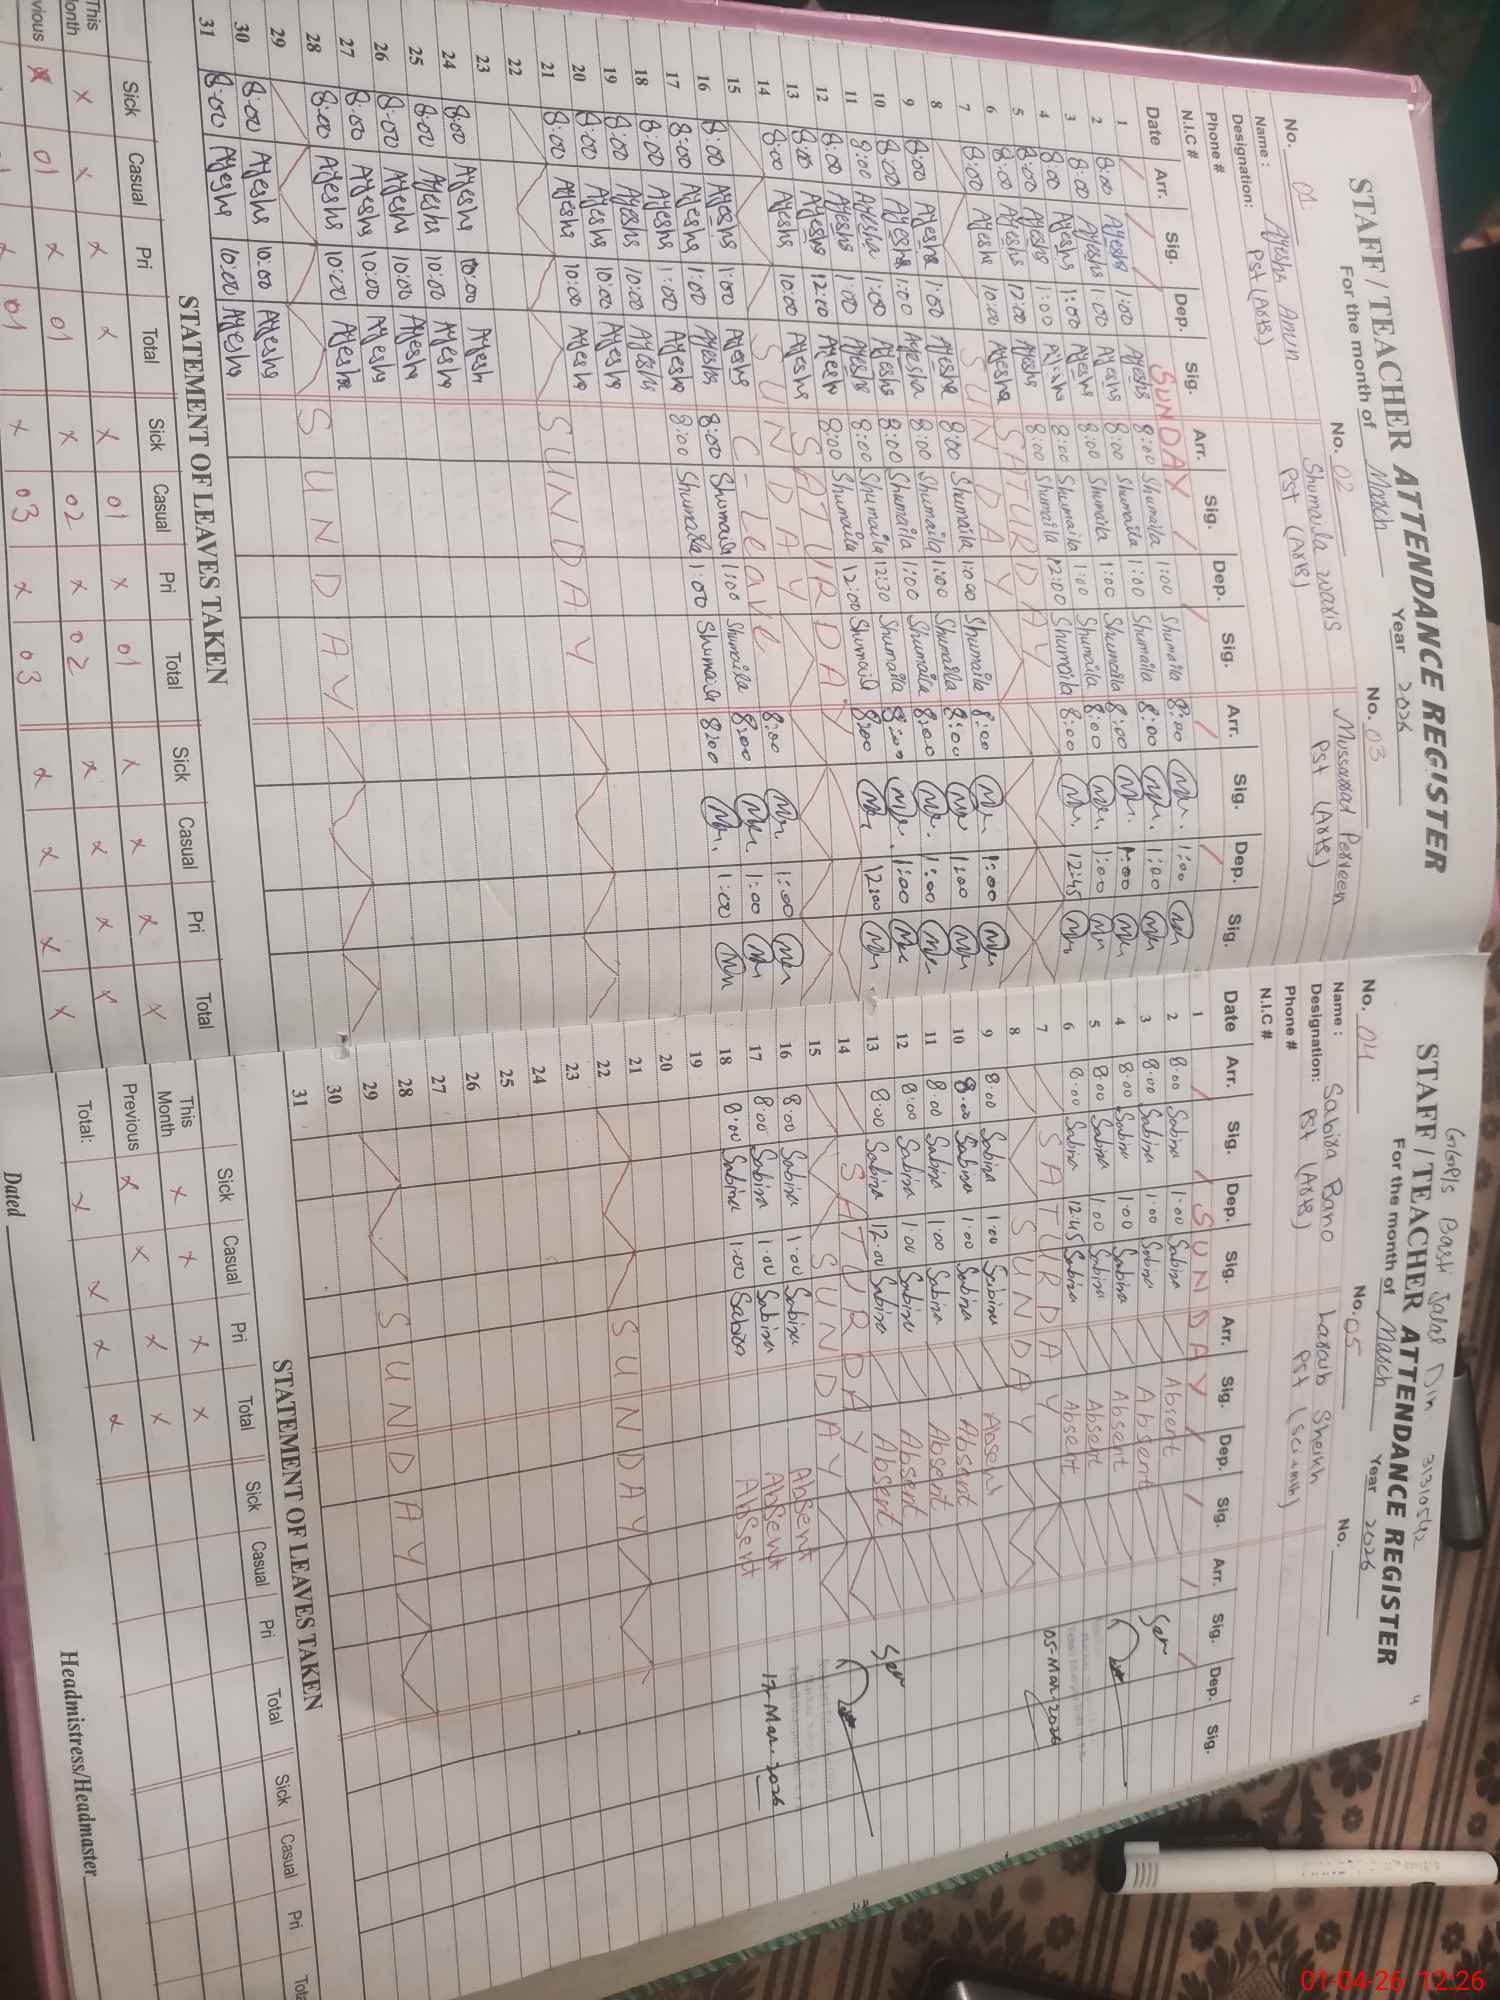 STAFF / TEACHER ATTENDANCE REGISTER
For the month of March Year 2026
No. 01
Name : Ayesha Amin
Designation: PST (Arts)
Phone #
N.I.C #
No. 02
Shumaila Waris
PST (Arts)
No. 03
Mussarrat Parveen
PST (Arts)
Date Arr. Sig. Dep. Sig. Arr. Sig. Dep. Sig. Arr. Sig. Dep. Sig.
1 SUNDAY
2 8:00 Ayesha 1:00 Ayesha 8:00 Shumaila 1:00 Shumaila 8:00 1:00
3 8:00 Ayesha 1:00 Ayesha 8:00 Shumaila 1:00 Shumaila 8:00 1:00
4 8:00 Ayesha 1:00 Ayesha 8:00 Shumaila 1:00 Shumaila 8:00 1:00
5 8:00 Ayesha 1:00 Ayesha 8:00 Shumaila 1:00 Shumaila 8:00 1:00
6 8:00 Ayesha 12:00 Ayesha 8:00 Shumaila 12:00 Shumaila 8:00 12:45
7 8:00 Ayesha 10:00 Ayesha SATURDAY
8 SUNDAY
9 8:00 Ayesha 1:00 Ayesha 8:00 Shumaila 1:00 Shumaila 8:00 1:00
10 8:00 Ayesha 1:00 Ayesha 8:00 Shumaila 1:00 Shumaila 8:00 1:00
11 8:00 Ayesha 1:00 Ayesha 8:00 Shumaila 1:00 Shumaila 8:00 1:00
12 8:00 Ayesha 1:00 Ayesha 8:00 Shumaila 12:30 Shumaila 8:00 1:00
13 8:00 Ayesha 12:00 8:00 Shumaila 12:00 Shumaila 8:00 12:00
14 8:00 Ayesha 10:00 Ayesha SATURDAY
15 SUNDAY
16 8:00 Ayesha 1:00 Ayesha C-Leave 8:00 1:00
17 8:00 Ayesha 1:00 Ayesha 8:00 Shumaila 1:00 Shumaila 8:00 1:00
18 8:00 Ayesha 1:00 Ayesha 8:00 Shumaila 1:00 Shumaila 8:00 1:00
19 8:00 Ayesha 10:00 Ayesha
20 8:00 Ayesha 10:00 Ayesha
21 8:00 Ayesha 10:00 Ayesha
22 SUNDAY
23
24 8:00 Ayesha 10:00 Ayesh
25 8:00 Ayesha 10:00 Ayesha
26 8:00 Ayesha 10:00 Ayesha
27 8:00 Ayesha 10:00 Ayesha
28 8:00 Ayesha 10:00 Ayesha
29 SUNDAY
30 8:00 Ayesha 10:00 Ayesha
31 8:00 Ayesha 10:00 Ayesha
STATEMENT OF LEAVES TAKEN
Sick Casual Pri Total Sick Casual Pri Total Sick Casual Pri Total
This Month x x x x x 01 x 01 x x x x
vious x 01 x 01 x 02 x 02 x x x x
x 01 x 03 x 03 x x x x
G.G.P/S Basti Jalal Din 31310542
4
STAFF / TEACHER ATTENDANCE REGISTER
For the month of March Year 2026
No. 04
Name : Sabira Bano
Designation: PST (Arts)
Phone #
N.I.C #
No. 05
Laraib Sheikh
PST (Sci+math)
No.
Date Arr. Sig. Dep. Sig. Arr. Sig. Dep. Sig. Arr. Sig. Dep. Sig.
1 SUNDAY
2 8:00 Sabira 1:00 Sabira Absent
3 8:00 Sabira 1:00 Sabira Absent
4 8:00 Sabira 1:00 Sabira Absent
5 8:00 Sabira 1:00 Sabira Absent
6 8:00 Sabira 12:45 Sabira Absent
7 SATURDAY
8 SUNDAY
9 8:00 Sabira 1:00 Sabira Absent
10 8:00 Sabira 1:00 Sabira Absent
11 8:00 Sabira 1:00 Sabira Absent
12 8:00 Sabira 1:00 Sabira Absent
13 8:00 Sabira 12:00 Sabira Absent
14 SATURDAY
15 SUNDAY
16 8:00 Sabira 1:00 Sabira Absent
17 8:00 Sabira 1:00 Sabira Absent
18 8:00 Sabira 1:00 Sabira Absent
19
20
21
22 SUNDAY
23
24
25
26
27
28
29 SUNDAY
30
31
05-Mar-2026
17-Mar-2026
STATEMENT OF LEAVES TAKEN
Sick Casual Pri Total Sick Casual Pri Total Sick Casual Pri
This Month x x x x
Previous x x x x
Total: x x x x
Dated
Headmistress/Headmaster
01-04-26 12:26